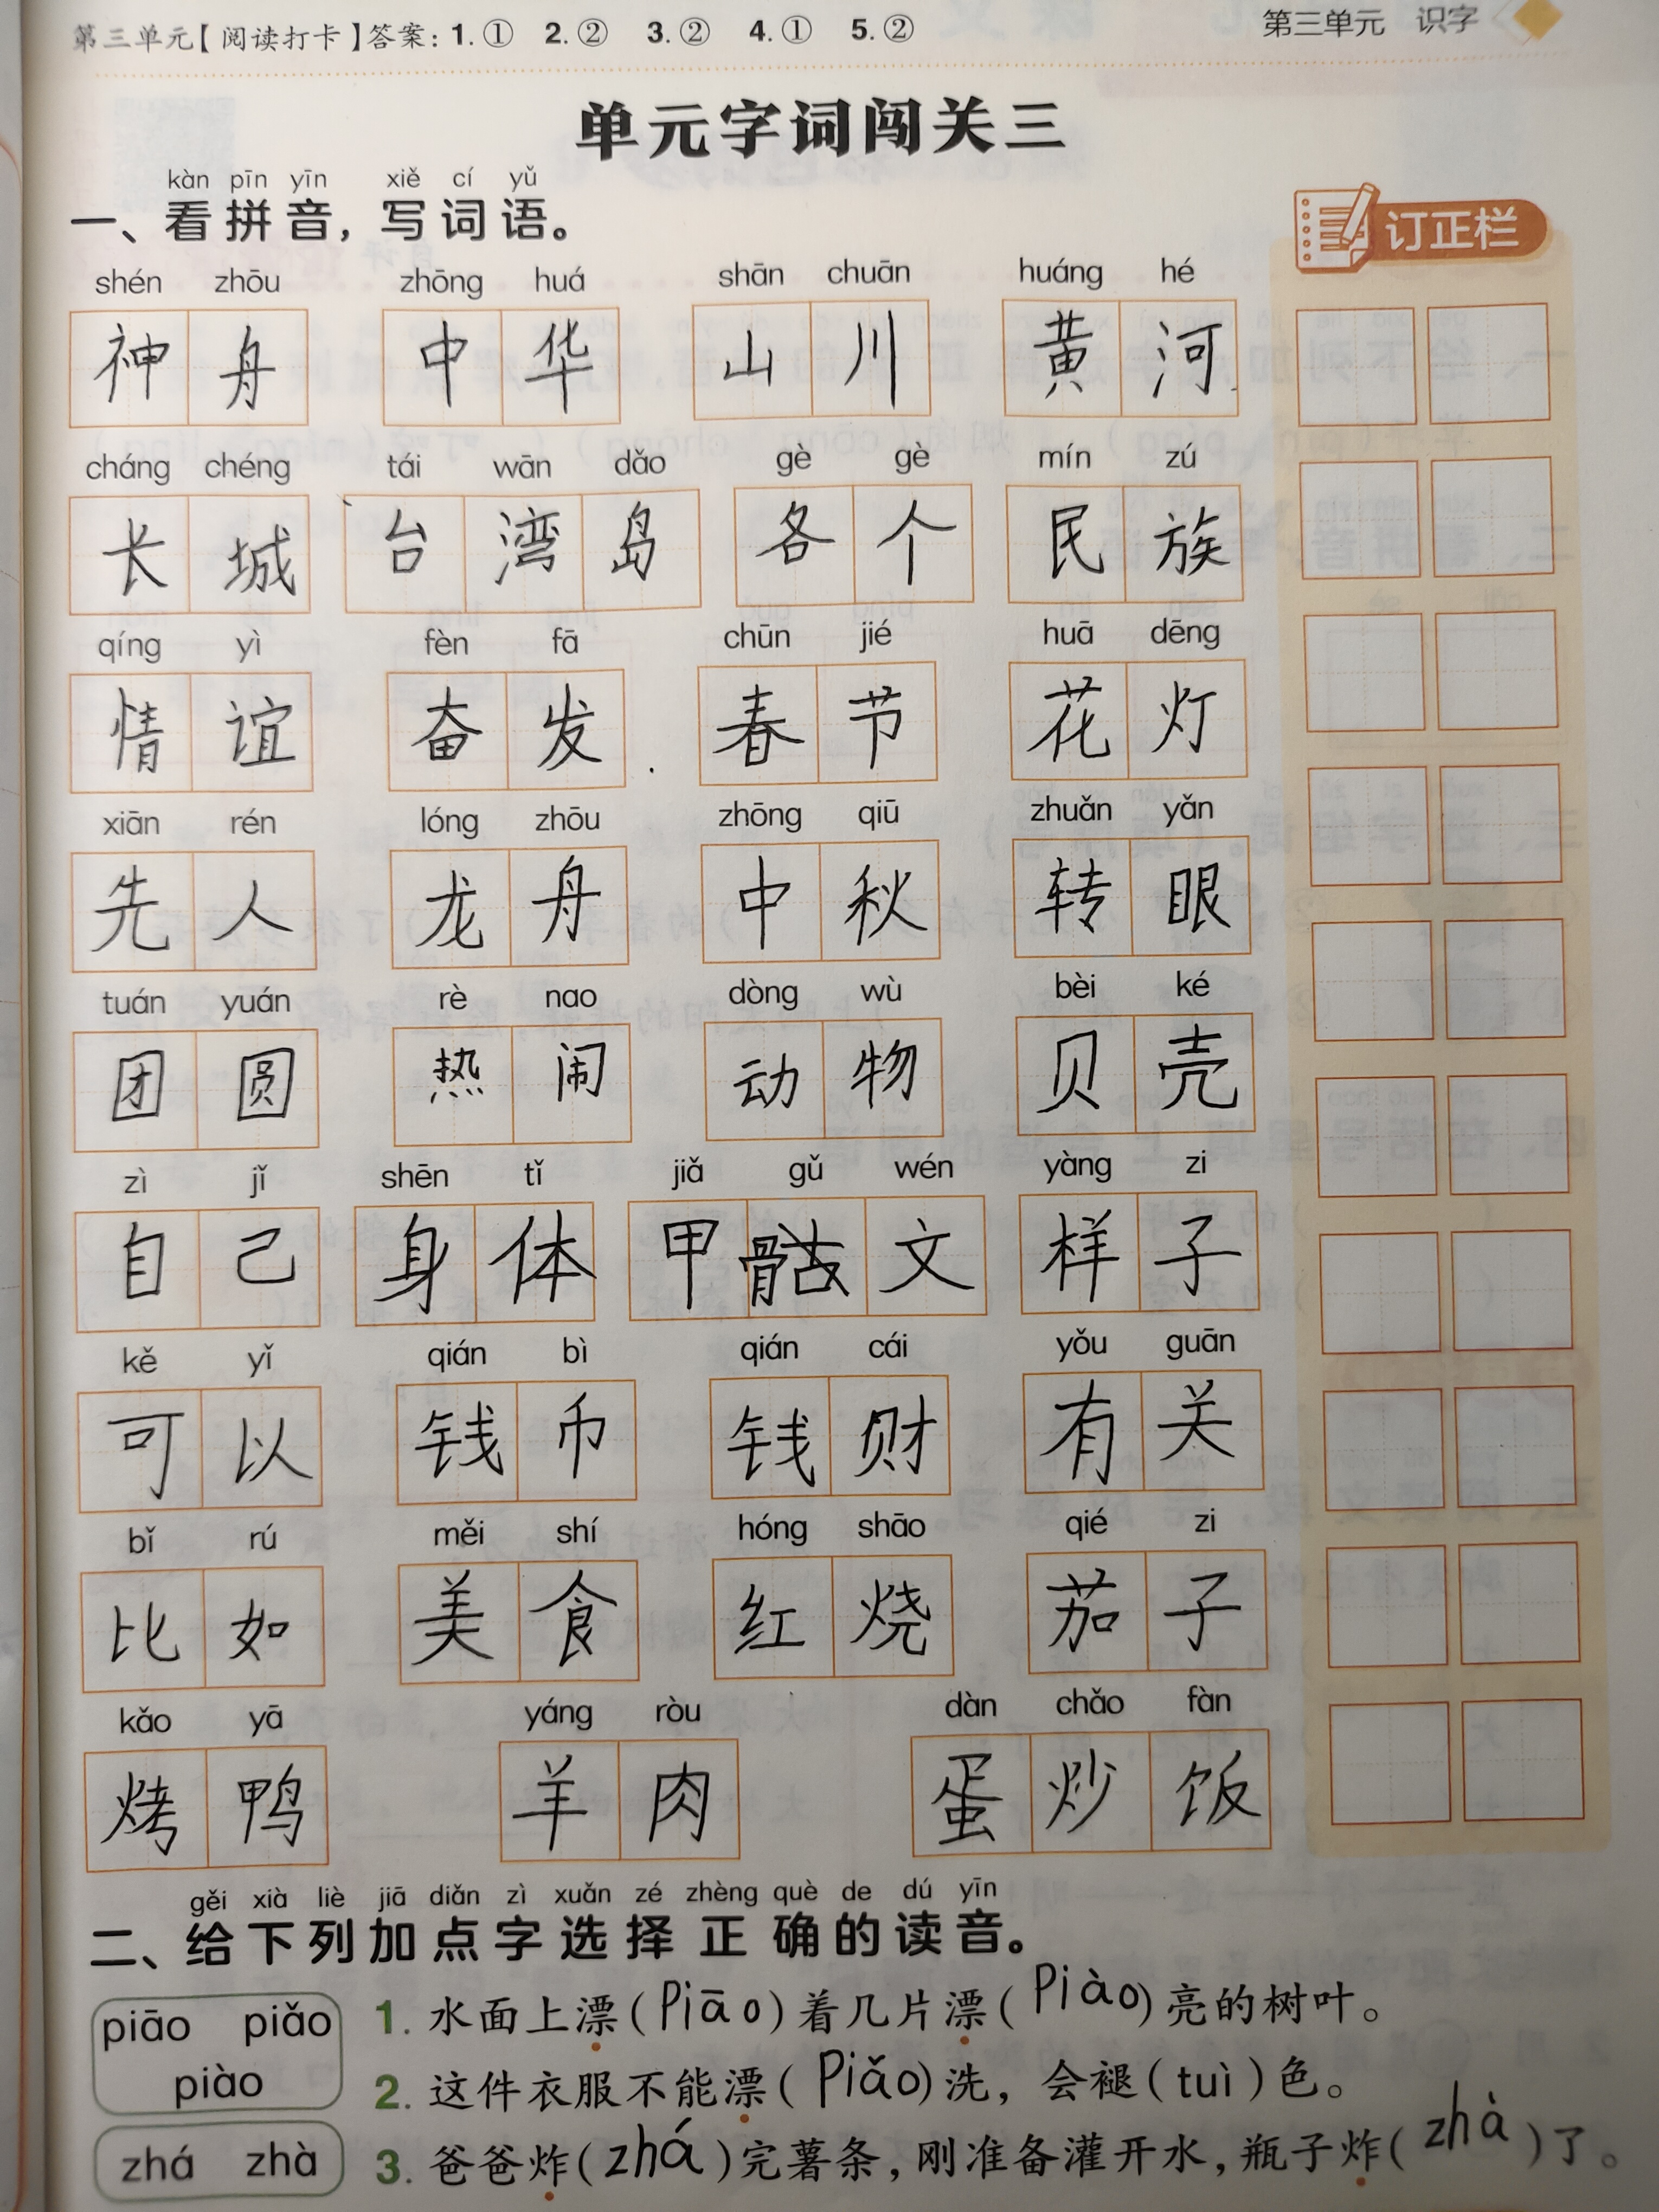 第三单元【阅读打卡】答案：1.① 2.② 3.② 4.① 5.②
第三单元 识字
单元字词闯关三
kàn pīn yīn xiě cí yǔ
一、看拼音，写词语。
订正栏
shén zhōu zhōng huá shān chuān huáng hé
神舟 中华 山川 黄河
cháng chéng tái wān dǎo gè gè mín zú
长城 台湾岛 各个 民族
qíng yì fèn fā chūn jié huā dēng
情谊 奋发 春节 花灯
xiān rén lóng zhōu zhōng qiū zhuǎn yǎn
先人 龙舟 中秋 转眼
tuán yuán rè nao dòng wù bèi ké
团圆 热闹 动物 贝壳
zì jǐ shēn tǐ jiǎ gǔ wén yàng zi
自己 身体 甲文 样子
kě yǐ qián bì qián cái yǒu guān
可以 钱币 钱财 有关
bǐ rú měi shí hóng shāo qié zi
比如 美食 红烧 茄子
kǎo yā yáng ròu dàn chǎo fàn
烤鸭 羊肉 蛋炒饭
gěi xià liè jiā diǎn zì xuǎn zé zhèng què de dú yīn
二、给下列加点字选择正确的读音。
piāo piǎo
piào
1. 水面上漂（piāo）着几片漂（piào）亮的树叶。
2. 这件衣服不能漂（piǎo）洗，会褪（tuì）色。
zhá zhà
3. 爸爸炸（zhá）完薯条，刚准备灌开水，瓶子炸（zhà）了。